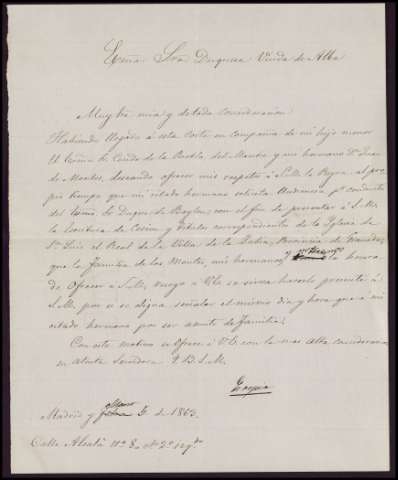 Exma. Sra Duquesa Viuda de Alba
Muy Sra mia y de toda consideracion
Habiendo llegado á esta Corte en compañia de mi hijo menor
El Exmo Sr Conde de la Puebla del Maestre y mi hermano Dn Juan
de Montes, deseando ofrecer mis respetos á S.M. la Reyna al pro
pio tiempo que mi citado hermano solicita Audiencia pr conducto
del Exmo Sr Duque de Baylen con el fin de presentar á S.M.
la Escritura de Cesion y titulos correspondientes de la Iglesia de
Sn Luis el Real de la Villa de la Zubia, Provincia de Granada,
que la familia de los Montes, mis hermanos, y la honra
de Ofrecer á S.M., ruego á Vd se sirva hacerlo presente á
S.M. por si se digna señalar el mismo dia y hora que á mi
citado hermano por ser asunto de familia.
Con este motivo se ofrece á Vd con la mas alta consideracion
su atenta servidora Q.B.S.M.
Madrid y de 1863.
Calle Alcalá nº 2º izqda